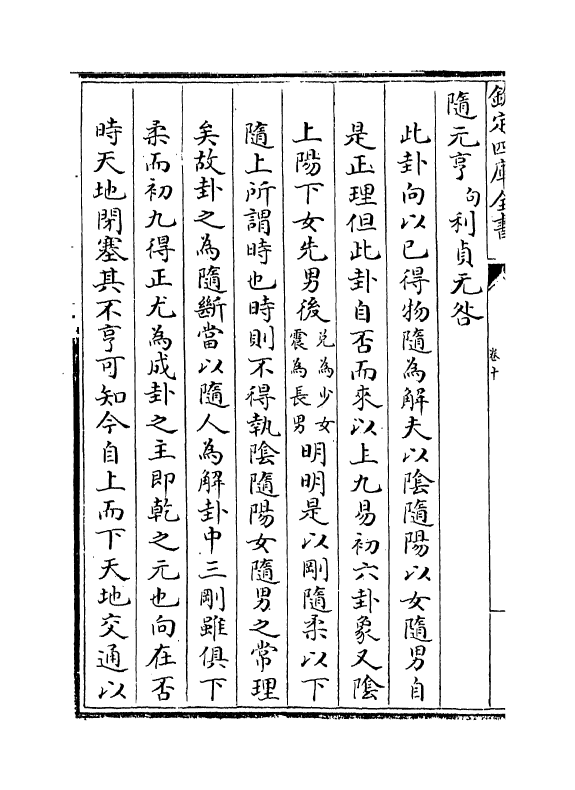 欽定四庫全書
卷十
隨元亨句利貞无咎
此卦向以已得物隨為解夫以陰隨陽以女隨男自
是正理但此卦自否而來以上九易初六卦象又陰
上陽下女先男後兌為少女震為長男明明是以剛隨柔以下
隨上所謂時也時則不得執陰隨陽女隨男之常理
矣故卦之為隨斷當以隨人為解卦中三剛雖俱下
柔而初九得正尤為成卦之主即乾之元也向在否
時天地閉塞其不亨可知今自上而下天地交通以